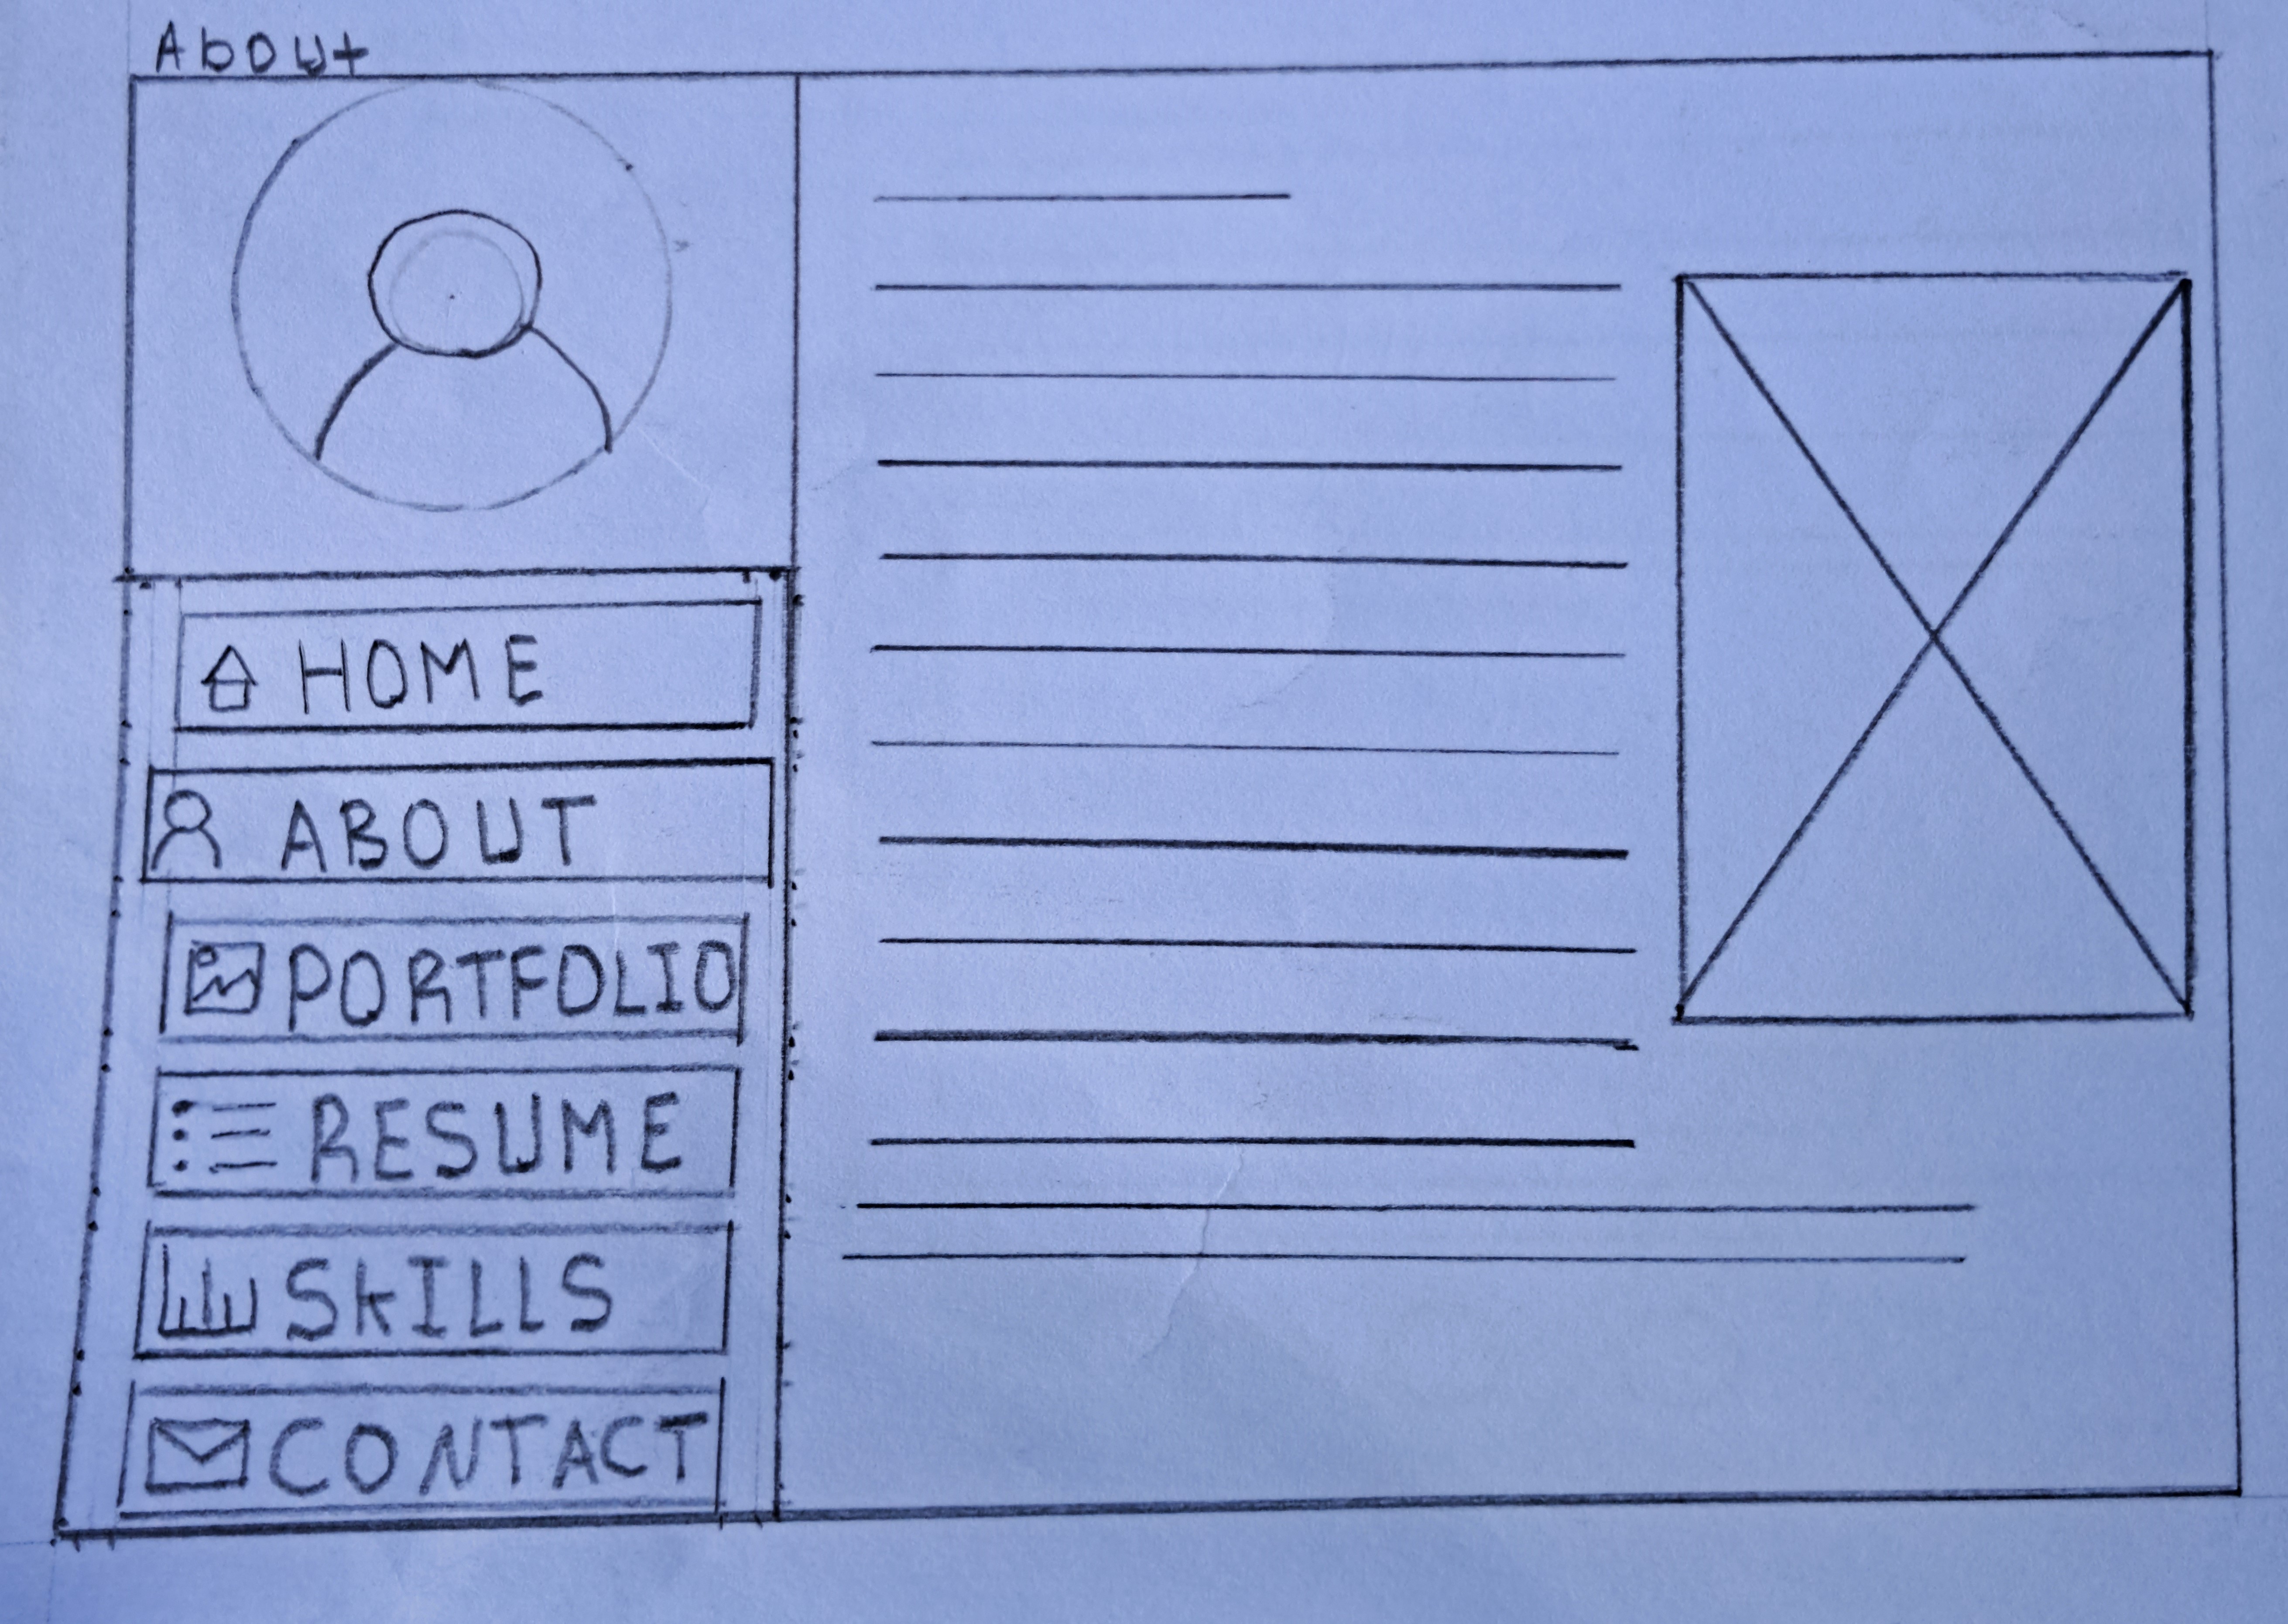 About
HOME
ABOUT
PORTFOLIO
RESUME
SkILLS
CONTACT